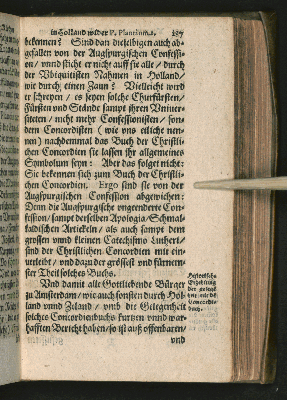 in Holland wider P. Plantium. 187
bekennen? Sind dan dieselbigen auch ab-
gefallen von der Augspurgischen Confessi-
on / vnnd sticht er nicht auff sie alle / durch
der Vbiquitisten Nahmen in Holland /
wie durch einen Zaun? Vielleicht wird
er schreyen / es seyen solche Churfürsten /
Fürsten vnd Stände sampt jhren Vniver-
siteten / nicht mehr Confessionisten / son-
dern Concordisten (wie vns etliche nen-
nen) nachdemmal das Buch der Christli-
chen Concordien sie lassen jhr allgemeines
Symbolum seyn: Aber das folget nicht:
Sie bekennen sich zum Buch der Christli-
chen Concordien. Ergo sind sie von der
Augspurgischen Confession abgewichen:
Denn die Augspurgische vngeenderte Con-
fession / sampt derselben Apologia / Schmal-
kaldischen Artickeln / als auch sampt dem
grossen vnnd kleinen Catechismo Lutheri /
sind der Christlichen Concordien mit ein-
verleibt / vnd dazu der grössest vnd fürnem-
ster Theil solches Buchs.
Vnd damit alle Gottliebende Bürger
zu Amsterdam / wie auch sonsten durch Hol-
land vnnd Zeland / vmb die Gelegenheit
solches Concordienbuchs kurtzen vnnd war-
hafften Bericht haben / so ist auß offenbaren /
vnd
Historische
Erzehlung
der
Concordien